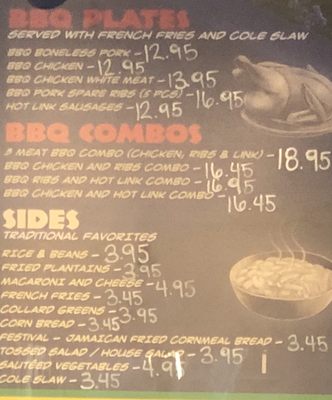 BBQ PLATES
SERVED WITH FRENCH FRIES AND COLE SLAW
BBQ BONELESS PORK - 12.95
BBQ CHICKEN - 12.95
BBQ CHICKEN WHITE MEAT - 13.95
BBQ PORK SPARE RIBS (5 PCS) - 16.95
HOT LINK SAUSAGES - 12.95
BBQ COMBOS
3 MEAT BBQ COMBO (CHICKEN, RIBS & LINK) - 18.95
BBQ CHICKEN AND RIBS COMBO - 16.45
BBQ RIBS AND HOT LINK COMBO - 16.95
BBQ CHICKEN AND HOT LINK COMBO - 16.45
SIDES
TRADITIONAL FAVORITES
RICE & BEANS - 3.95
FRIED PLANTAINS - 3.95
MACARONI AND CHEESE - 4.95
FRENCH FRIES - 3.45
COLLARD GREENS - 3.95
CORN BREAD - 3.45
FESTIVAL - JAMAICAN FRIED CORNMEAL BREAD - 3.45
TOSSED SALAD / HOUSE SALAD - 3.95
SAUTÉED VEGETABLES - 4.95
COLE SLAW - 3.45